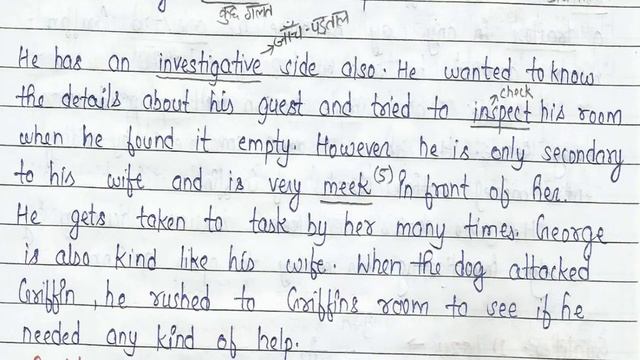 कुछ गलत
जाँच-पड़ताल
He has an investigative side also. He wanted to know
chock
the details about his guest and tried to inspect his room
when he found it empty. However he is only secondary
to his wife and is very meek (5) in front of her.
He gets taken to task by her many times. George
is also kind like his wife. When the dog attacked
Griffin, he rushed to Griffins room to see if he
needed any kind of help.